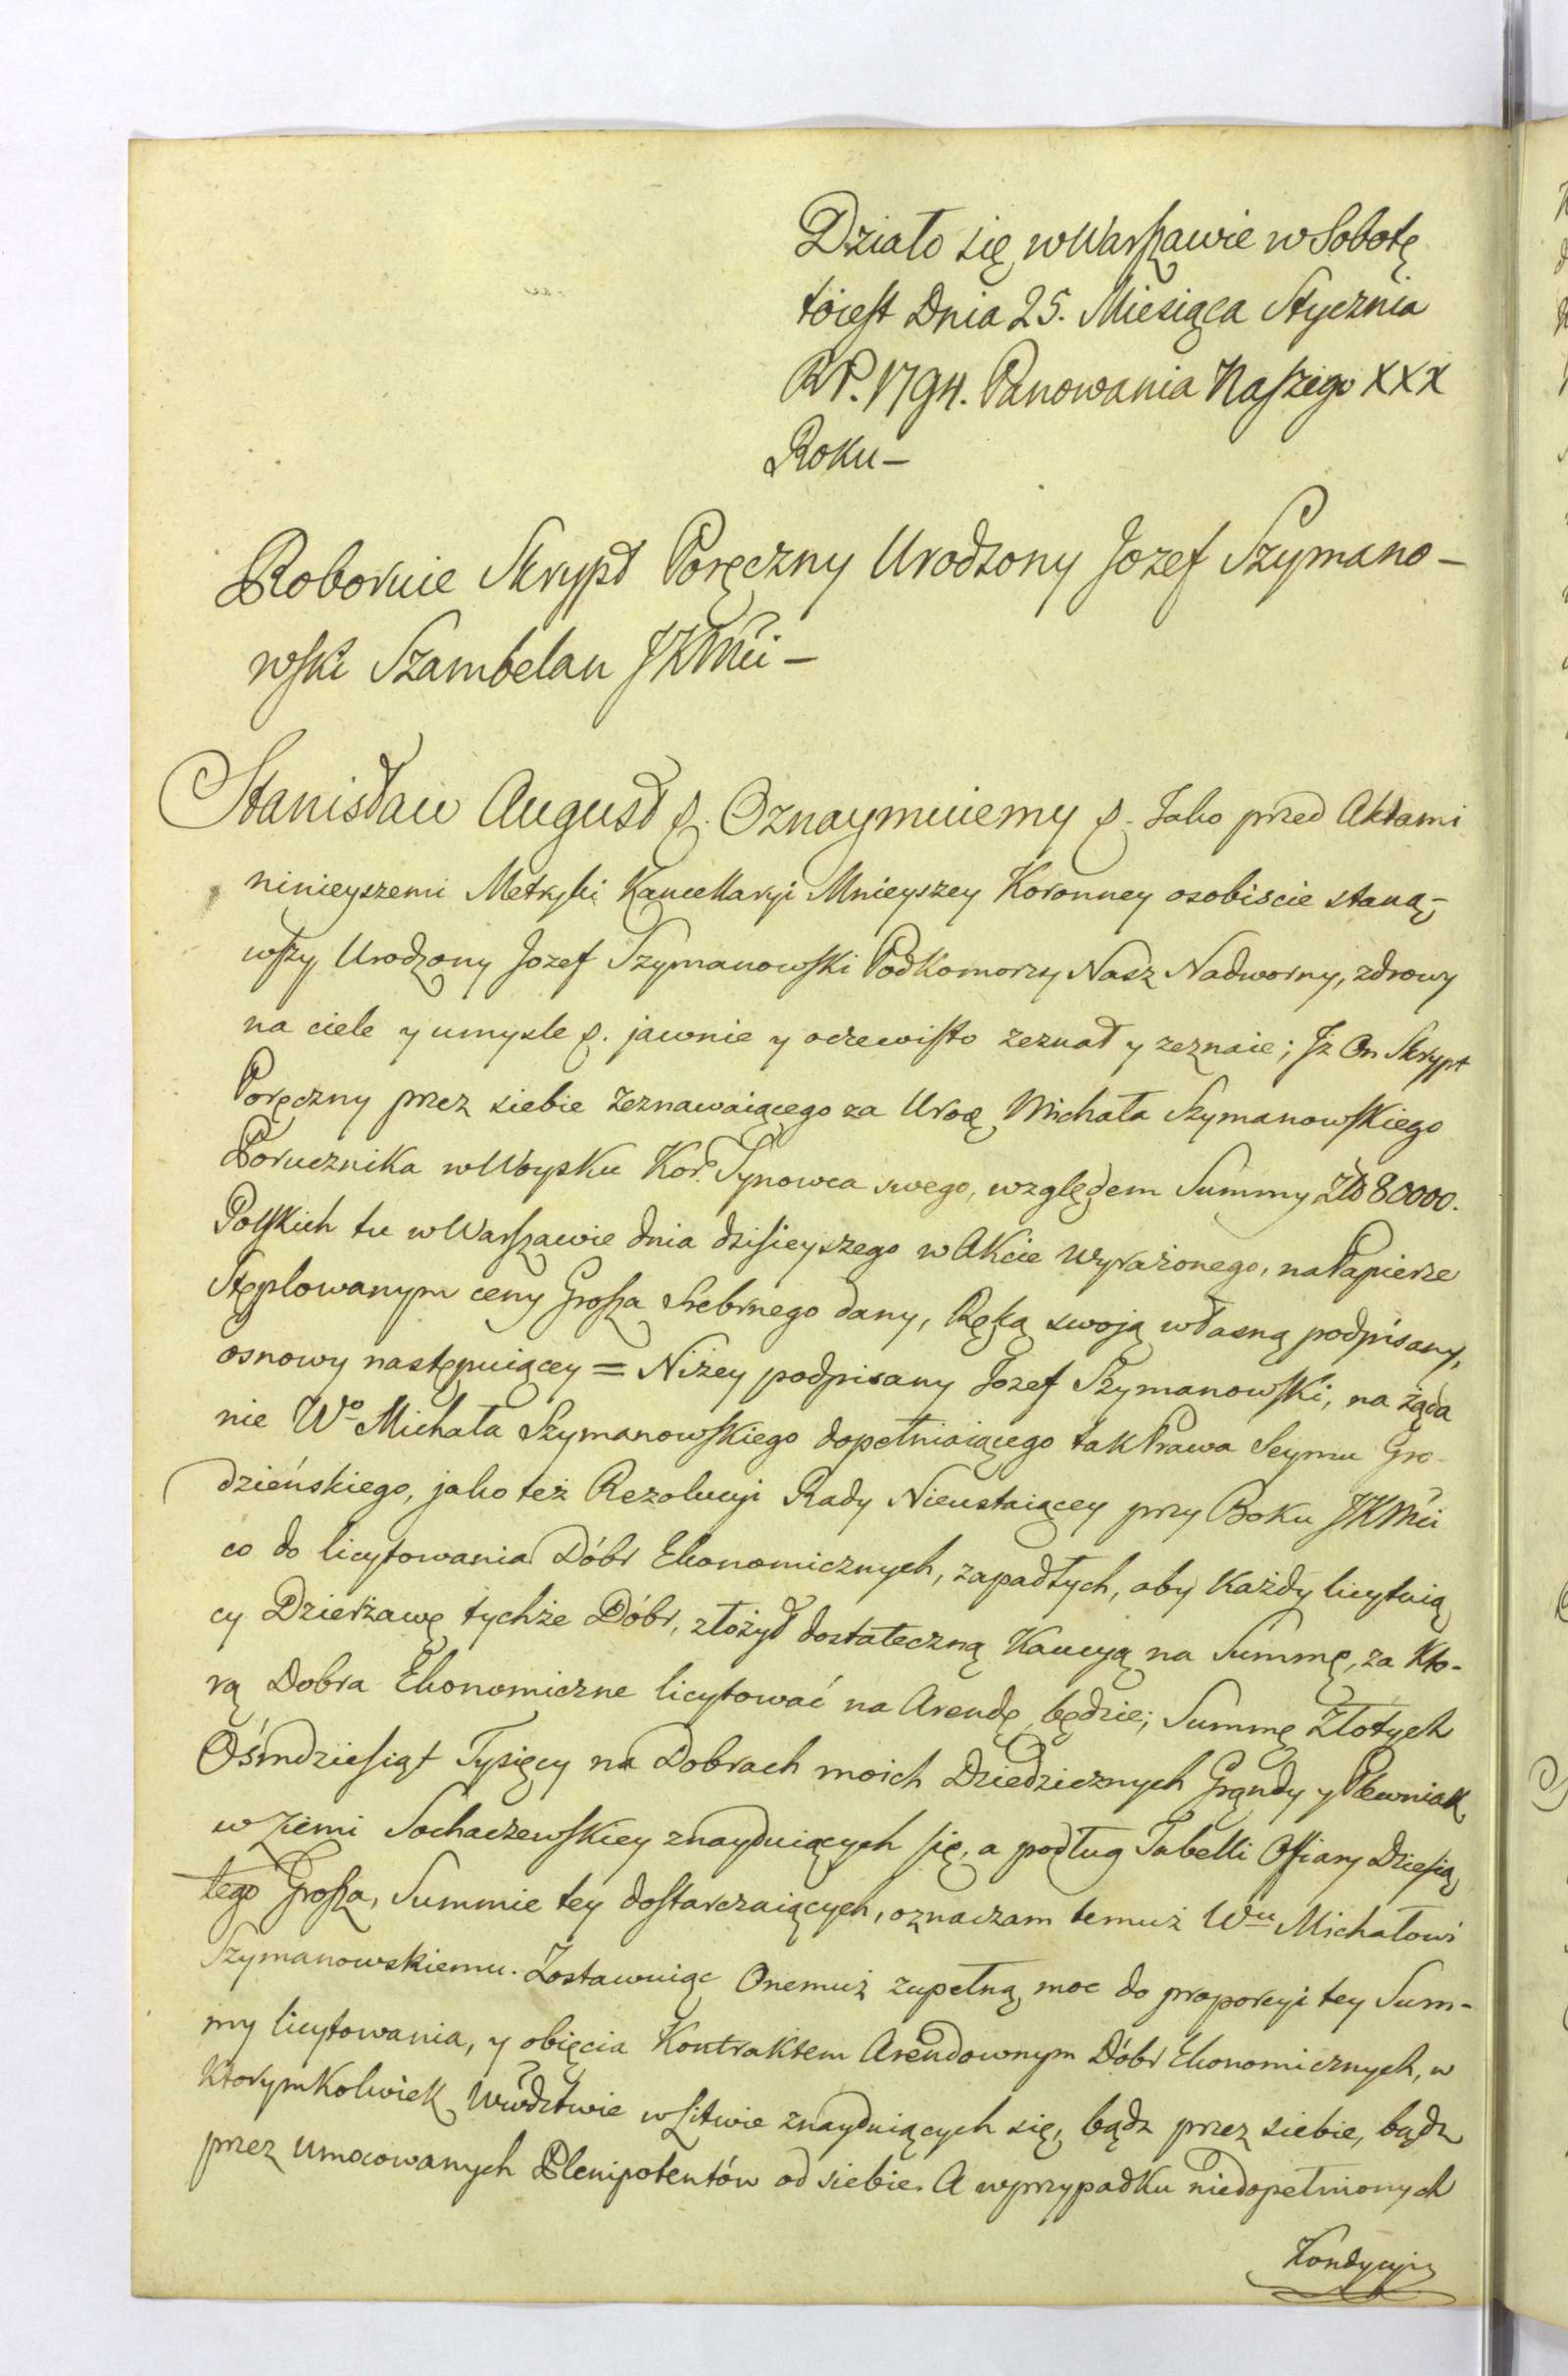 Działo się w Warszawie w Sobotę
toiest Dnia 25. Miesiąca Stycznia
RP. 1794. Panowania Naszego XXX
Roku —
Roboruie Skrypt Poręczny Urodzony Jozef Szymano-
wski Szambelan JKMci —
Stanisław August &. Oznaymuiemy &. Jako przed Aktami
ninieyszemi Metryki Kancellaryi Mnieyszey Koronney osobiscie staną-
wszy Urodzony Jozef Szymanowski Podkomorzy Nasz Nadworny, zdrowy
na ciele y umysle &. jawnie y oczewisto zeznał y zeznaie; Jż On Skrypt
Poręczny przez siebie zeznawaiącego za Uroę Michała Szymanowskiego
Porucznika w Woysku Kor. Synowca swego, względem Summy Zło 80000.
Polskich tu w Warszawie dnia dzisieyszego w Akcie wyrażonego, na Papierze
Stęplowanym ceny Grosza Srebrnego dany, Ręką swoją własną podpisany,
osnowy następuiącey = Niżey podpisany Jozef Szymanowski, na żąda
nie Wo Michała Szymanowskiego dopełniaiącego tak Prawa Seymu Gro-
dzieńskiego, jako też Rezolucyi Rady Nieustaiącey przy Boku JKMci
co do licytowania Dóbr Ekonomicznych, zapadłych, aby Każdy licytuią
cy Dzierżawę tychże Dóbr, złożył dostateczną Kaucyą na Summę, za Kto-
rą Dobra Ekonomiczne licytować na Arendę będzie; Summę Złotych
Ośmdziesiąt Tysięcy na Dobrach moich Dziedzicznych Grąndy y Plewniak
w Ziemi Sochaczewskiey znayduiących się, a podług Tabelli Offiary Dziesią
tego Grosza, Summie tey dostarczaiących, oznaczam temuż Wu Michałowi
Szymanowskiemu. Zostawuiąc Onemuż zupełną moc do proporcyi tey Sum-
my licytowania, y obięcia Kontraktem Arendownym Dóbr Ekonomicznych, w
Ktorymkolwiek Wwdztwie w Litwie znayduiących się, bądz przez siebie, bądz
przez umocowanych Plenipotentów od siebie. A w przypadku niedopełnionych
Kondycyi